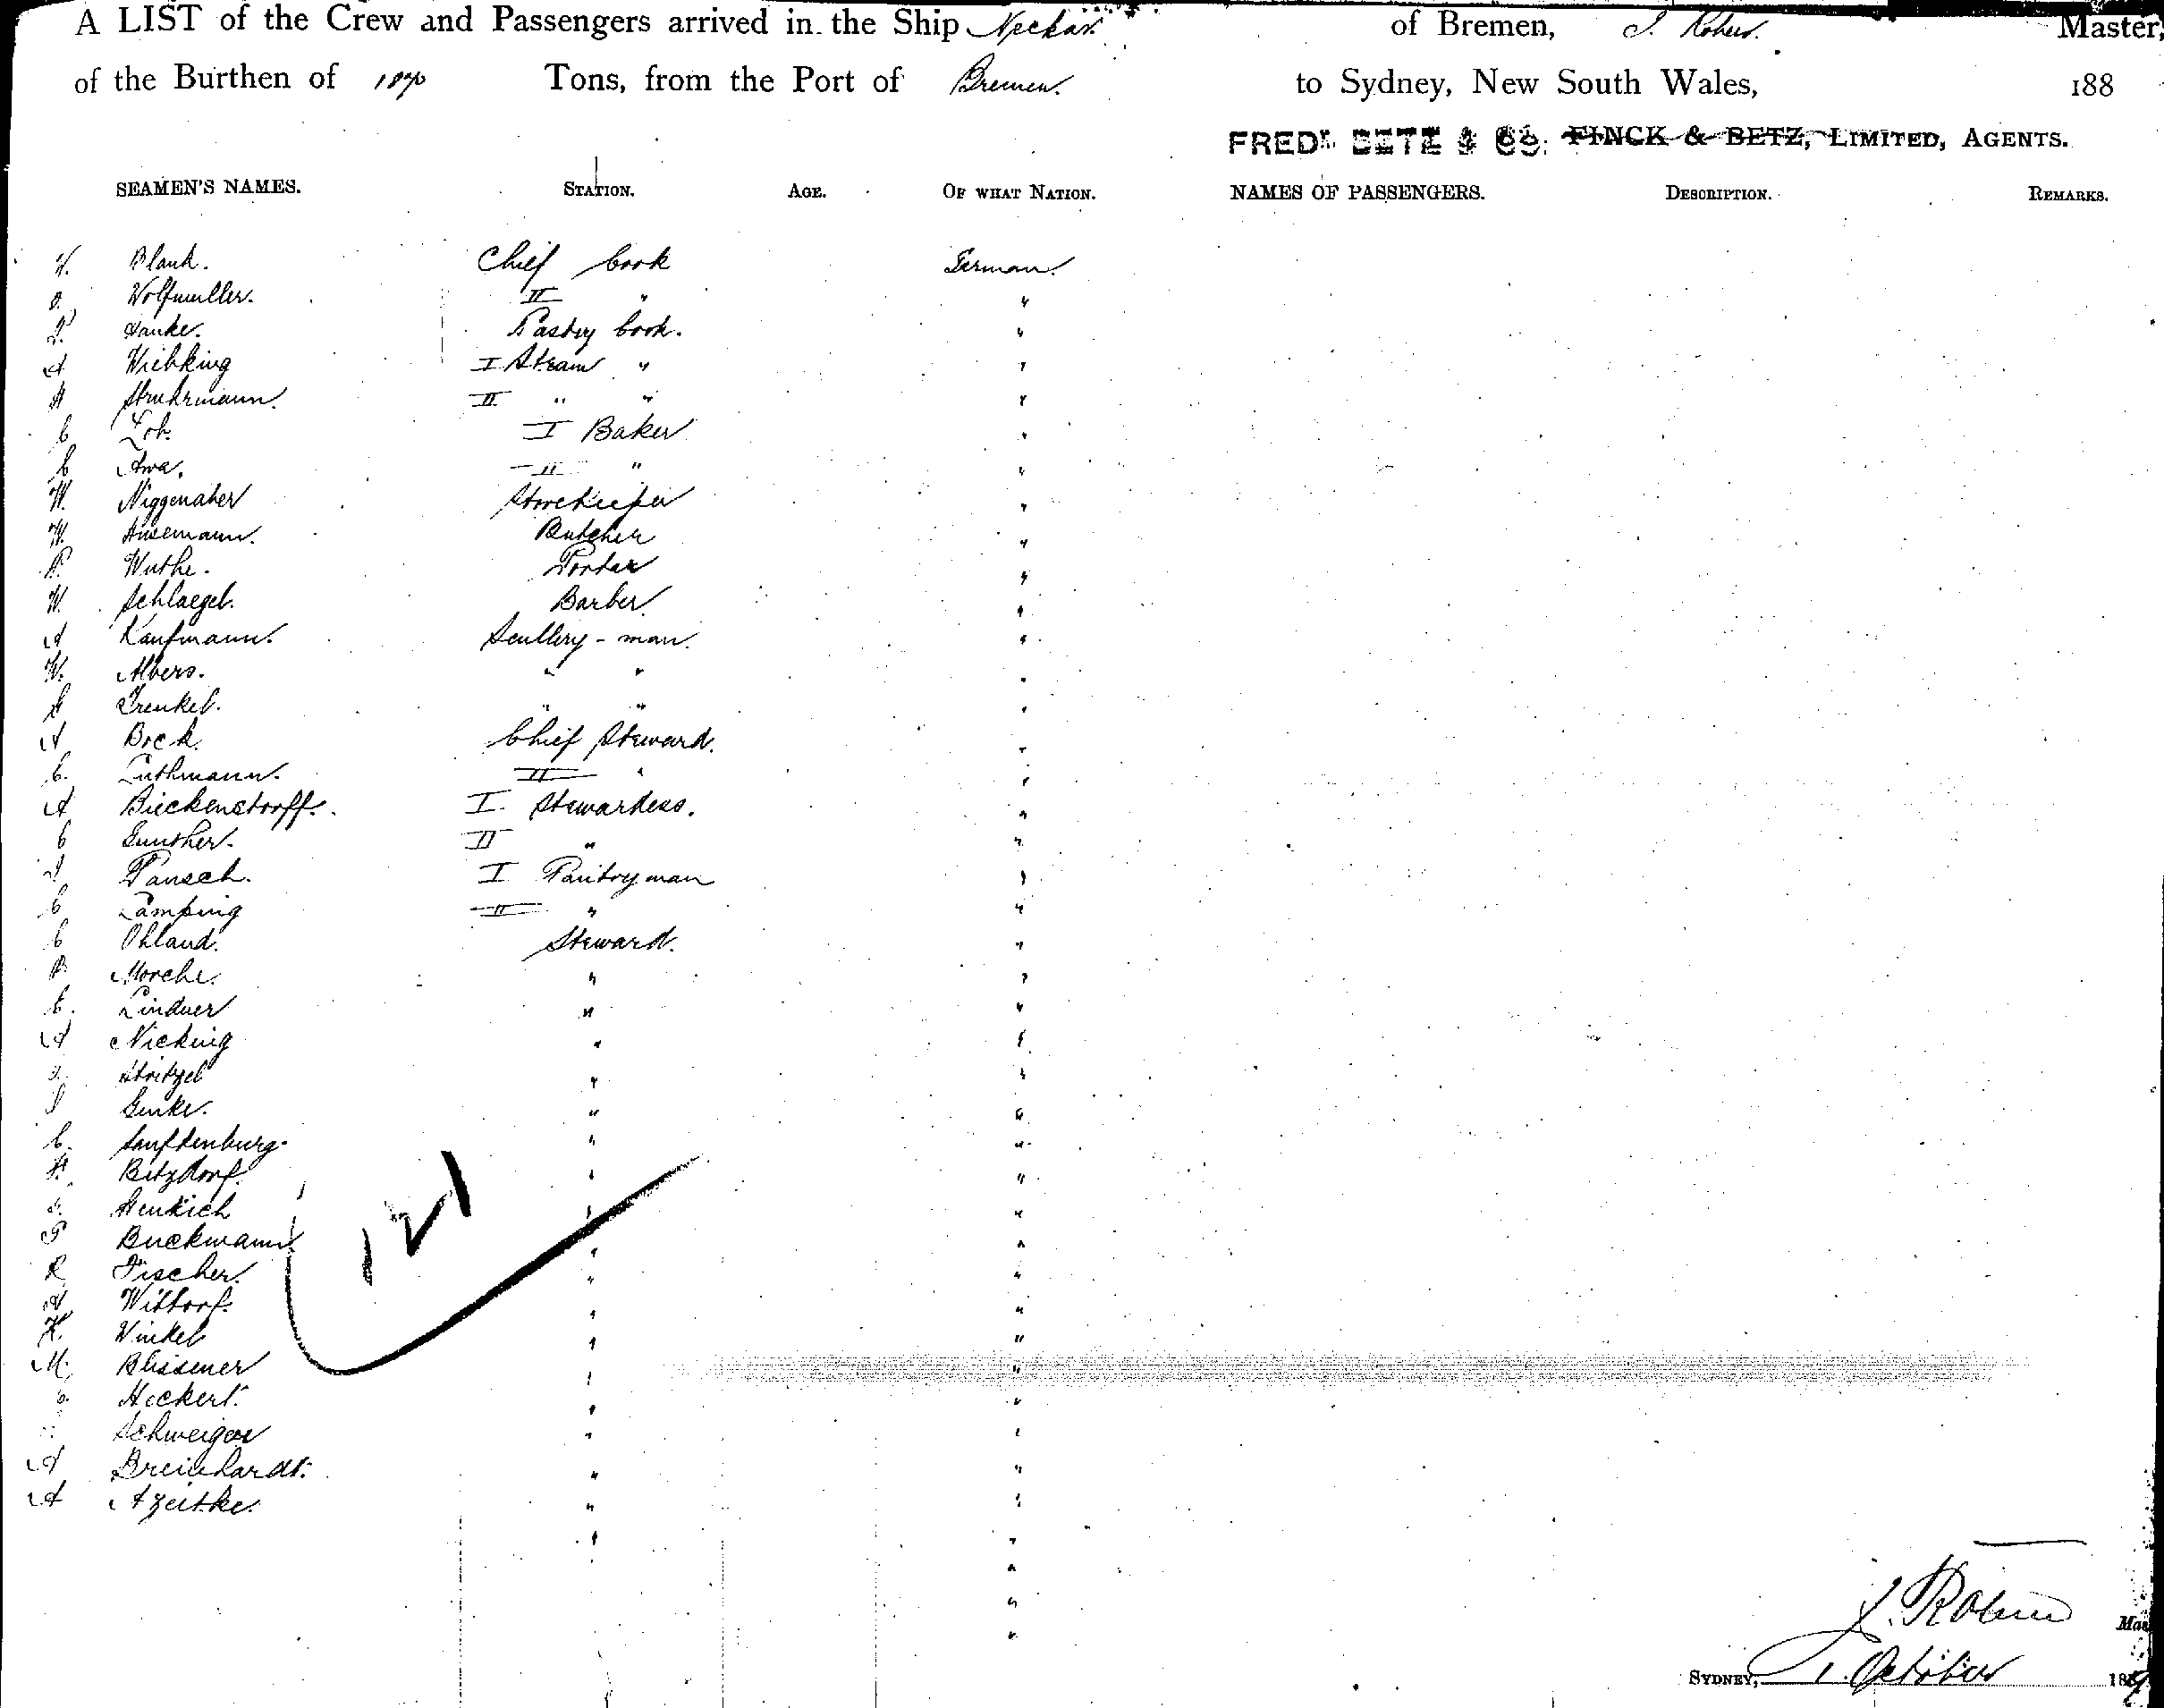 A LIST of the Crew and Passengers arrived in the Ship Neckar of Bremen, Master,
of the Burthen of 1870 Tons, from the Port of Bremen. to Sydney, New South Wales, 188
FREDK BETZ & Co. FINCK & BETZ, LIMITED, AGENTS.
SEAMEN'S NAMES. STATION. AGE. OF WHAT NATION. NAMES OF PASSENGERS. DESCRIPTION. REMARKS.
H. Blank. Chief Cook German.
O. Wolfmuller. II " "
Hanke. Pastry Cook. "
A Wiebking I Steam " "
H Struhrmann. II " " "
C Loh. I Baker "
C II " "
W. Niggenaber Storekeeper "
W. Husemann. Butcher "
Wuthe. Porter "
W. Schlaegel. Barber "
A Kaufmann. Scullery-man. "
W. Albers. " " "
Frenkel. " " "
A Bock. Chief Steward. "
C. Luthmann. II " "
A Bieckenstorff. I. Stewardess. "
C Gunther. II " "
Pansch. I Pantryman "
C Lamping II " "
C Ohland. Steward. "
Morche. " "
C. Lindner " "
A Nicking " "
Stritzel " "
Genke. " "
C. Sanftenburg. " "
H. Betzdorf. " "
Henkich " "
Buckmann " "
R Fischer. " "
A Wittorf. " "
K. Winkel " "
M. Blissener " "
Heckert. " "
Schweiger " "
A Breinhardt. " "
A " "
" "
"
"
"
121
Mas
SYDNEY, 1. October 1889